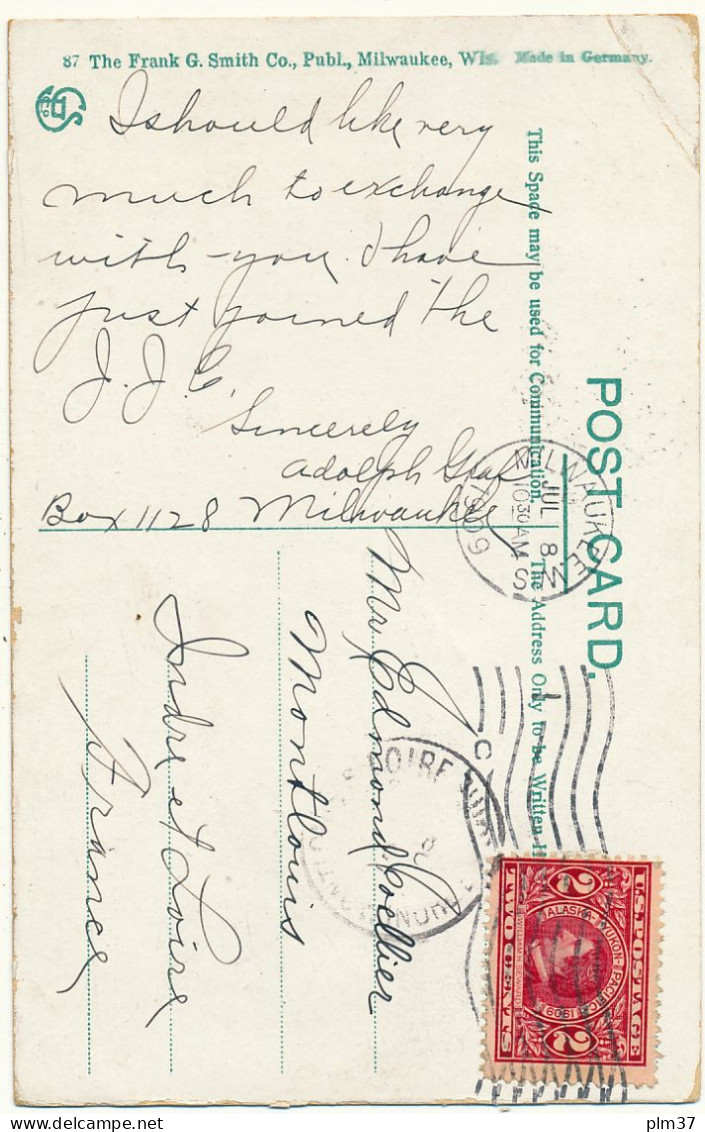 87 The Frank G. Smith Co., Publ., Milwaukee, Wis. Made in Germany.
I should like very
much to exchange
with you. I have
just joined the
J. J. C.
Sincerely
Adolph Graf
Box 1128 Milwaukee
This Space may be used for Communication. The Address Only to be Written H
POST CARD.
MILWAUKEE
JUL 8
10 30 AM
1909
Mr Edmond Coellier
Montlouis
Indre et Loire
France
U.S. POSTAGE
ALASKA-YUKON-PACIFIC 1909
WILLIAM H. SEWARD
2 TWO CENTS 2
plm37